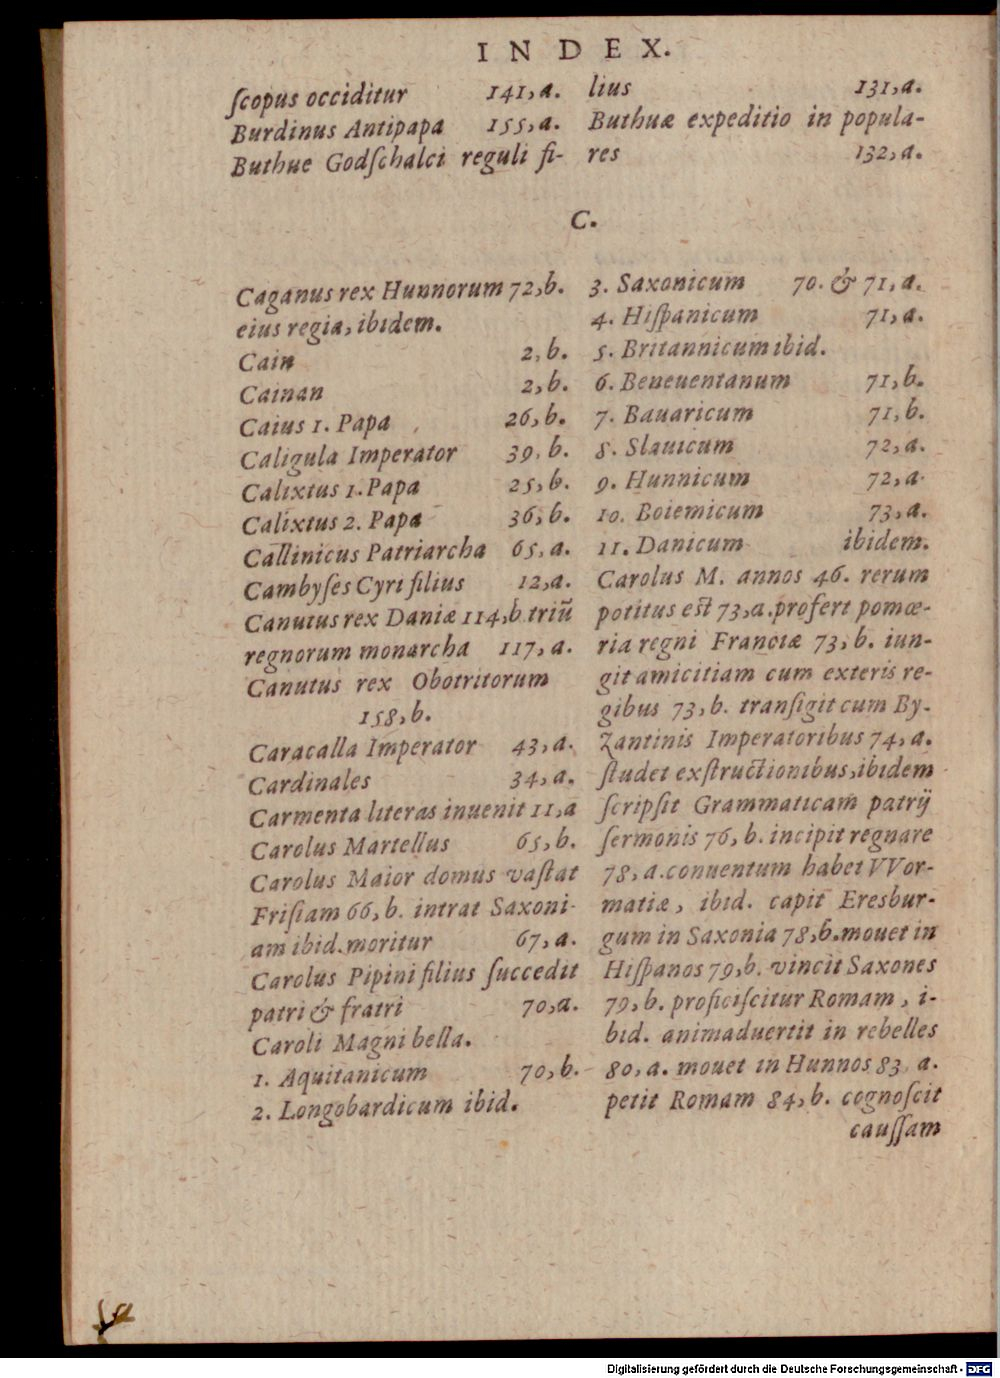 INDEX.
ſcopus occiditur 141,a.
Burdinus Antipapa 155,a.
Buthue Godſchalci reguli fi-
lius 131,a.
Buthuæ expeditio in popula-
res 132,a.
C.
Caganus rex Hunnorum 72,b.
eius regia, ibidem.
Cain 2,b.
Cainan 2,b.
Caius 1. Papa 26,b.
Caligula Imperator 39,b.
Calixtus 1. Papa 25,b.
Calixtus 2. Papa 36,b.
Callinicus Patriarcha 65,a.
Cambyſes Cyri filius 12,a.
Canutus rex Daniæ 114,b triũ
regnorum monarcha 117,a.
Canutus rex Obotritorum
158,b.
Caracalla Imperator 43,a.
Cardinales 34,a.
Carmenta literas inuenit 11,a
Carolus Martellus 65,b.
Carolus Maior domus vaſtat
Friſiam 66,b. intrat Saxoni-
am ibid. moritur 67,a.
Carolus Pipini filius ſuccedit
patri & fratri 70,a.
Caroli Magni bella.
1. Aquitanicum 70,b.
2. Longobardicum ibid.
3. Saxonicum 70. & 71,a.
4. Hiſpanicum 71,a.
5. Britannicum ibid.
6. Beneuentanum 71,b.
7. Bauaricum 71,b.
8. Slauicum 72,a.
9. Hunnicum 72,a.
10. Boiemicum 73,a.
11. Danicum ibidem.
Carolus M. annos 46. rerum
potitus est 73,a. profert pomœ-
ria regni Franciæ 73,b. iun-
git amicitiam cum exteris re-
gibus 73,b. tranſigit cum By-
zantinis Imperatoribus 74,a.
ſtudet exſtructionibus, ibidem
ſcripſit Grammaticam patrij
ſermonis 76,b. incipit regnare
78,a. conuentum habet VVor-
matiæ, ibid. capit Eresbur-
gum in Saxonia 78,b. mouet in
Hiſpanos 79,b. vincit Saxones
79,b. proficiſcitur Romam, i-
bid. animaduertit in rebelles
80,a. mouet in Hunnos 83,a.
petit Romam 84,b. cognoſcit
cauſſam
Digitalisierung gefördert durch die Deutsche Forschungsgemeinschaft - DFG